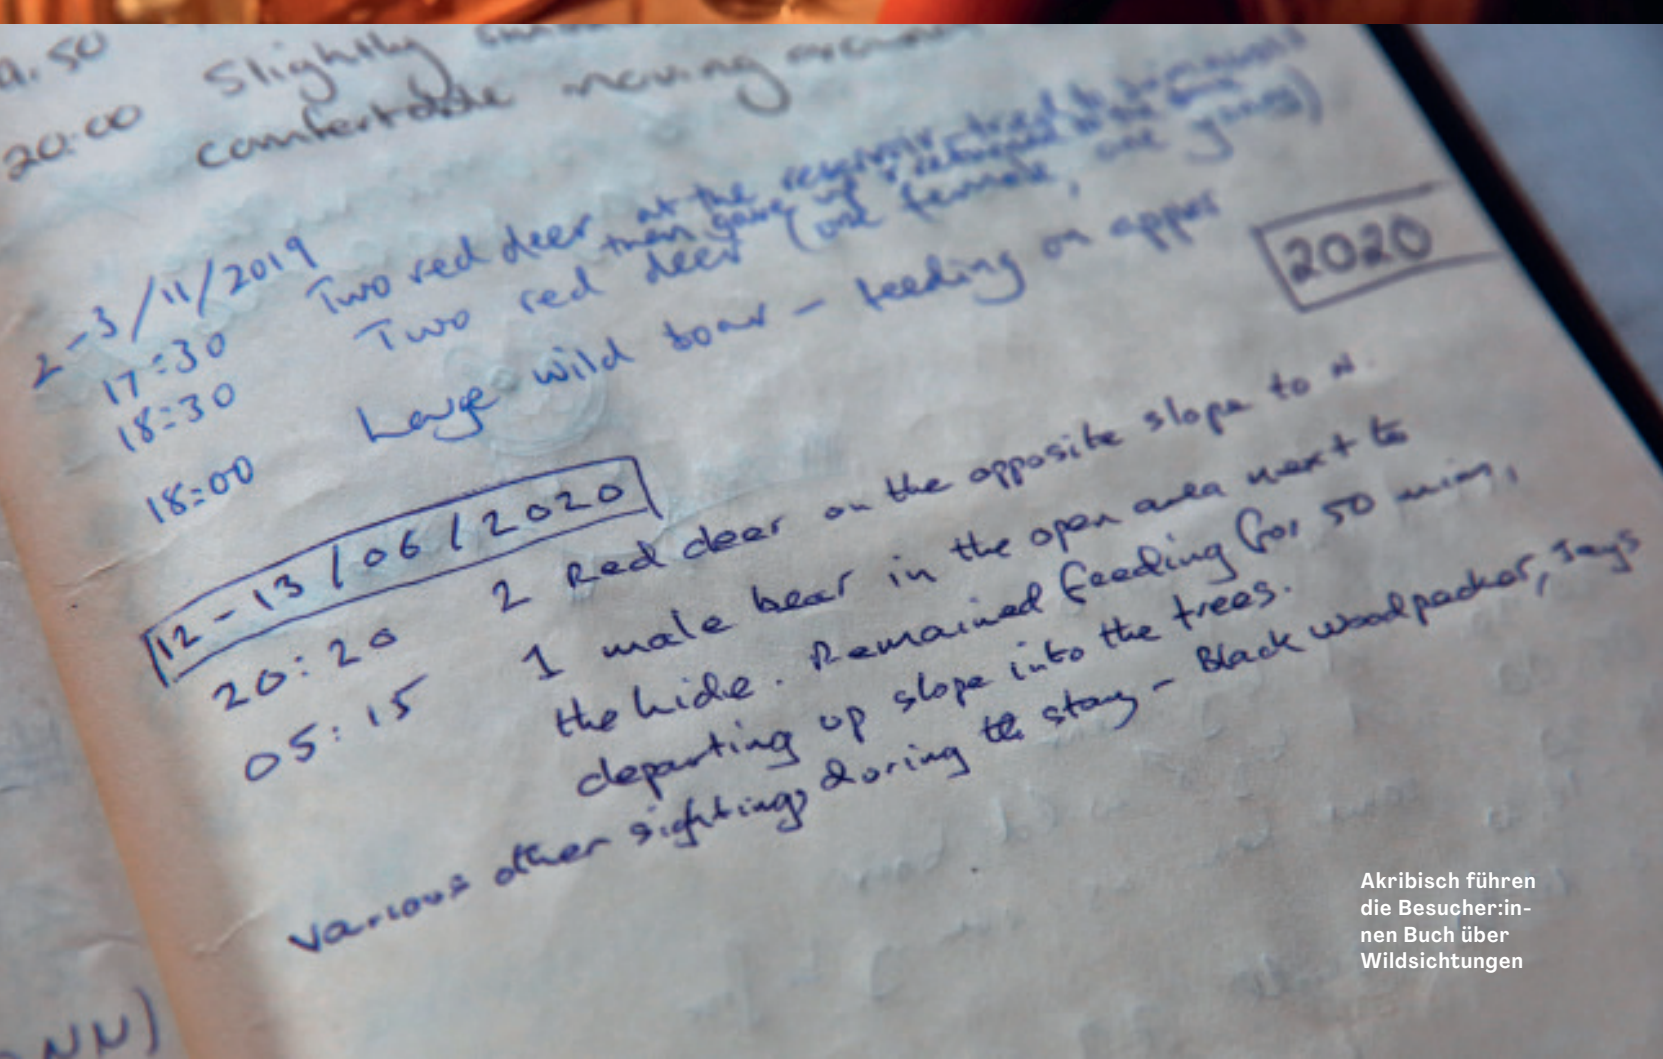 20:00 Slightly
comfortable moving
2-3/11/2019
17:30 Two red deer at the reservoir - tried to
then gave up & returned to the
18:30 Two red deer (one female, one young)
18:00 Large wild boar - feeding on
2020
12-13/06/2020
20:20 2 Red deer on the opposite slope to N.
05:15 1 male bear in the open area next to
the hide. Remained feeding for 50 mins,
departing up slope into the trees.
Various other sightings during the stay - Black woodpecker, Jays
NN)
Akribisch führen
die Besucher:in-
nen Buch über
Wildsichtungen